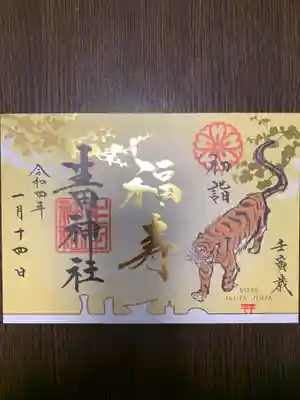 壬寅歳
初詣
福寿
生田神社
令和四年
一月十四日
KOBE
IKUTA JINJA